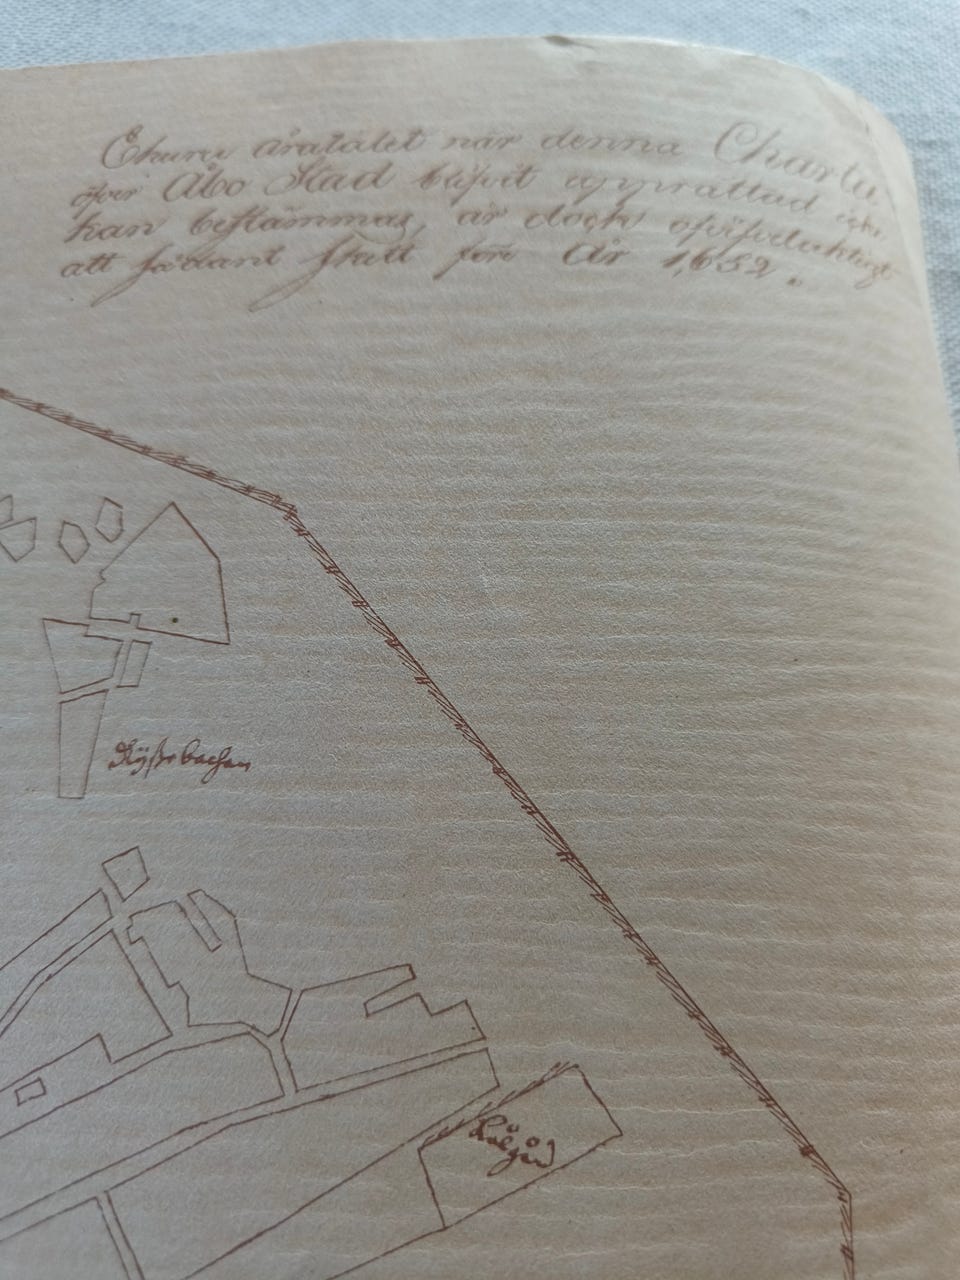 Ehuru åratalet när denna Charta
öfver Åbo Stad blifvit upprättad icke
kan bestämmas, är doch
att sådant skett före År 1652.
Kålgård